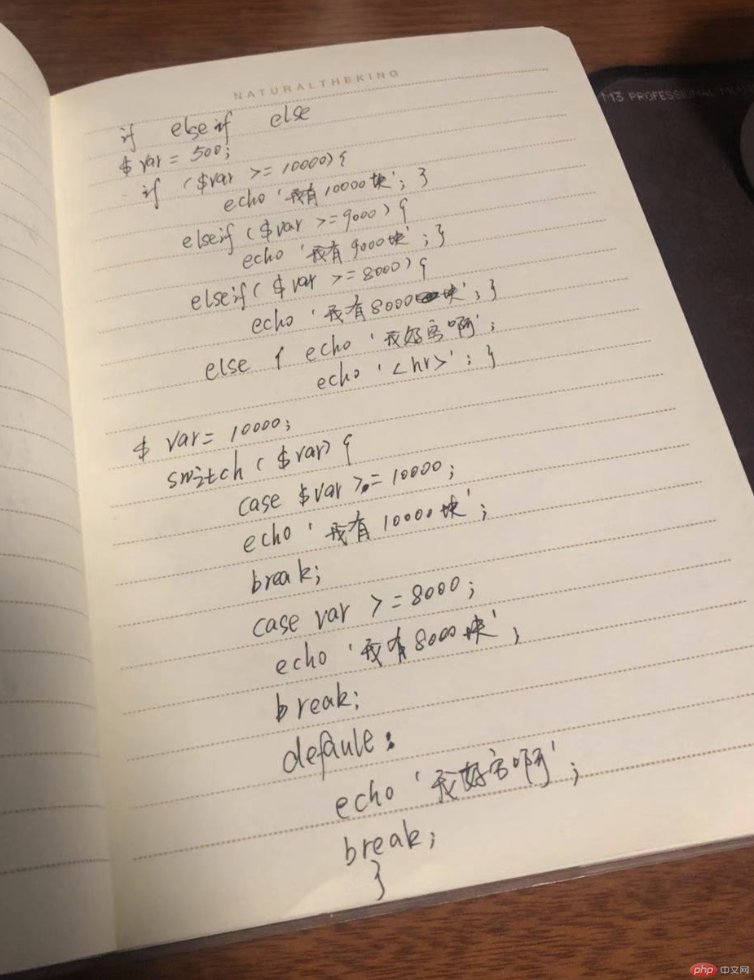 NATURALTHEKING
if elseif else
$var = 500;
if ($var >= 10000){
echo '我有10000块'; }
elseif ($var >=9000) {
echo '我有9000块'; }
elseif( $var >= 8000){
echo '我有8000块'; }
else { echo '我好穷啊';
echo '<hr>'; }
$ var = 10000;
switch ($var) {
case $var >= 10000;
echo '我有10000块';
break;
case var >= 8000;
echo '我有8000块';
break;
defaule:
echo '我好穷啊';
break;
}
M3 PROFESSIONAL
php 中文网